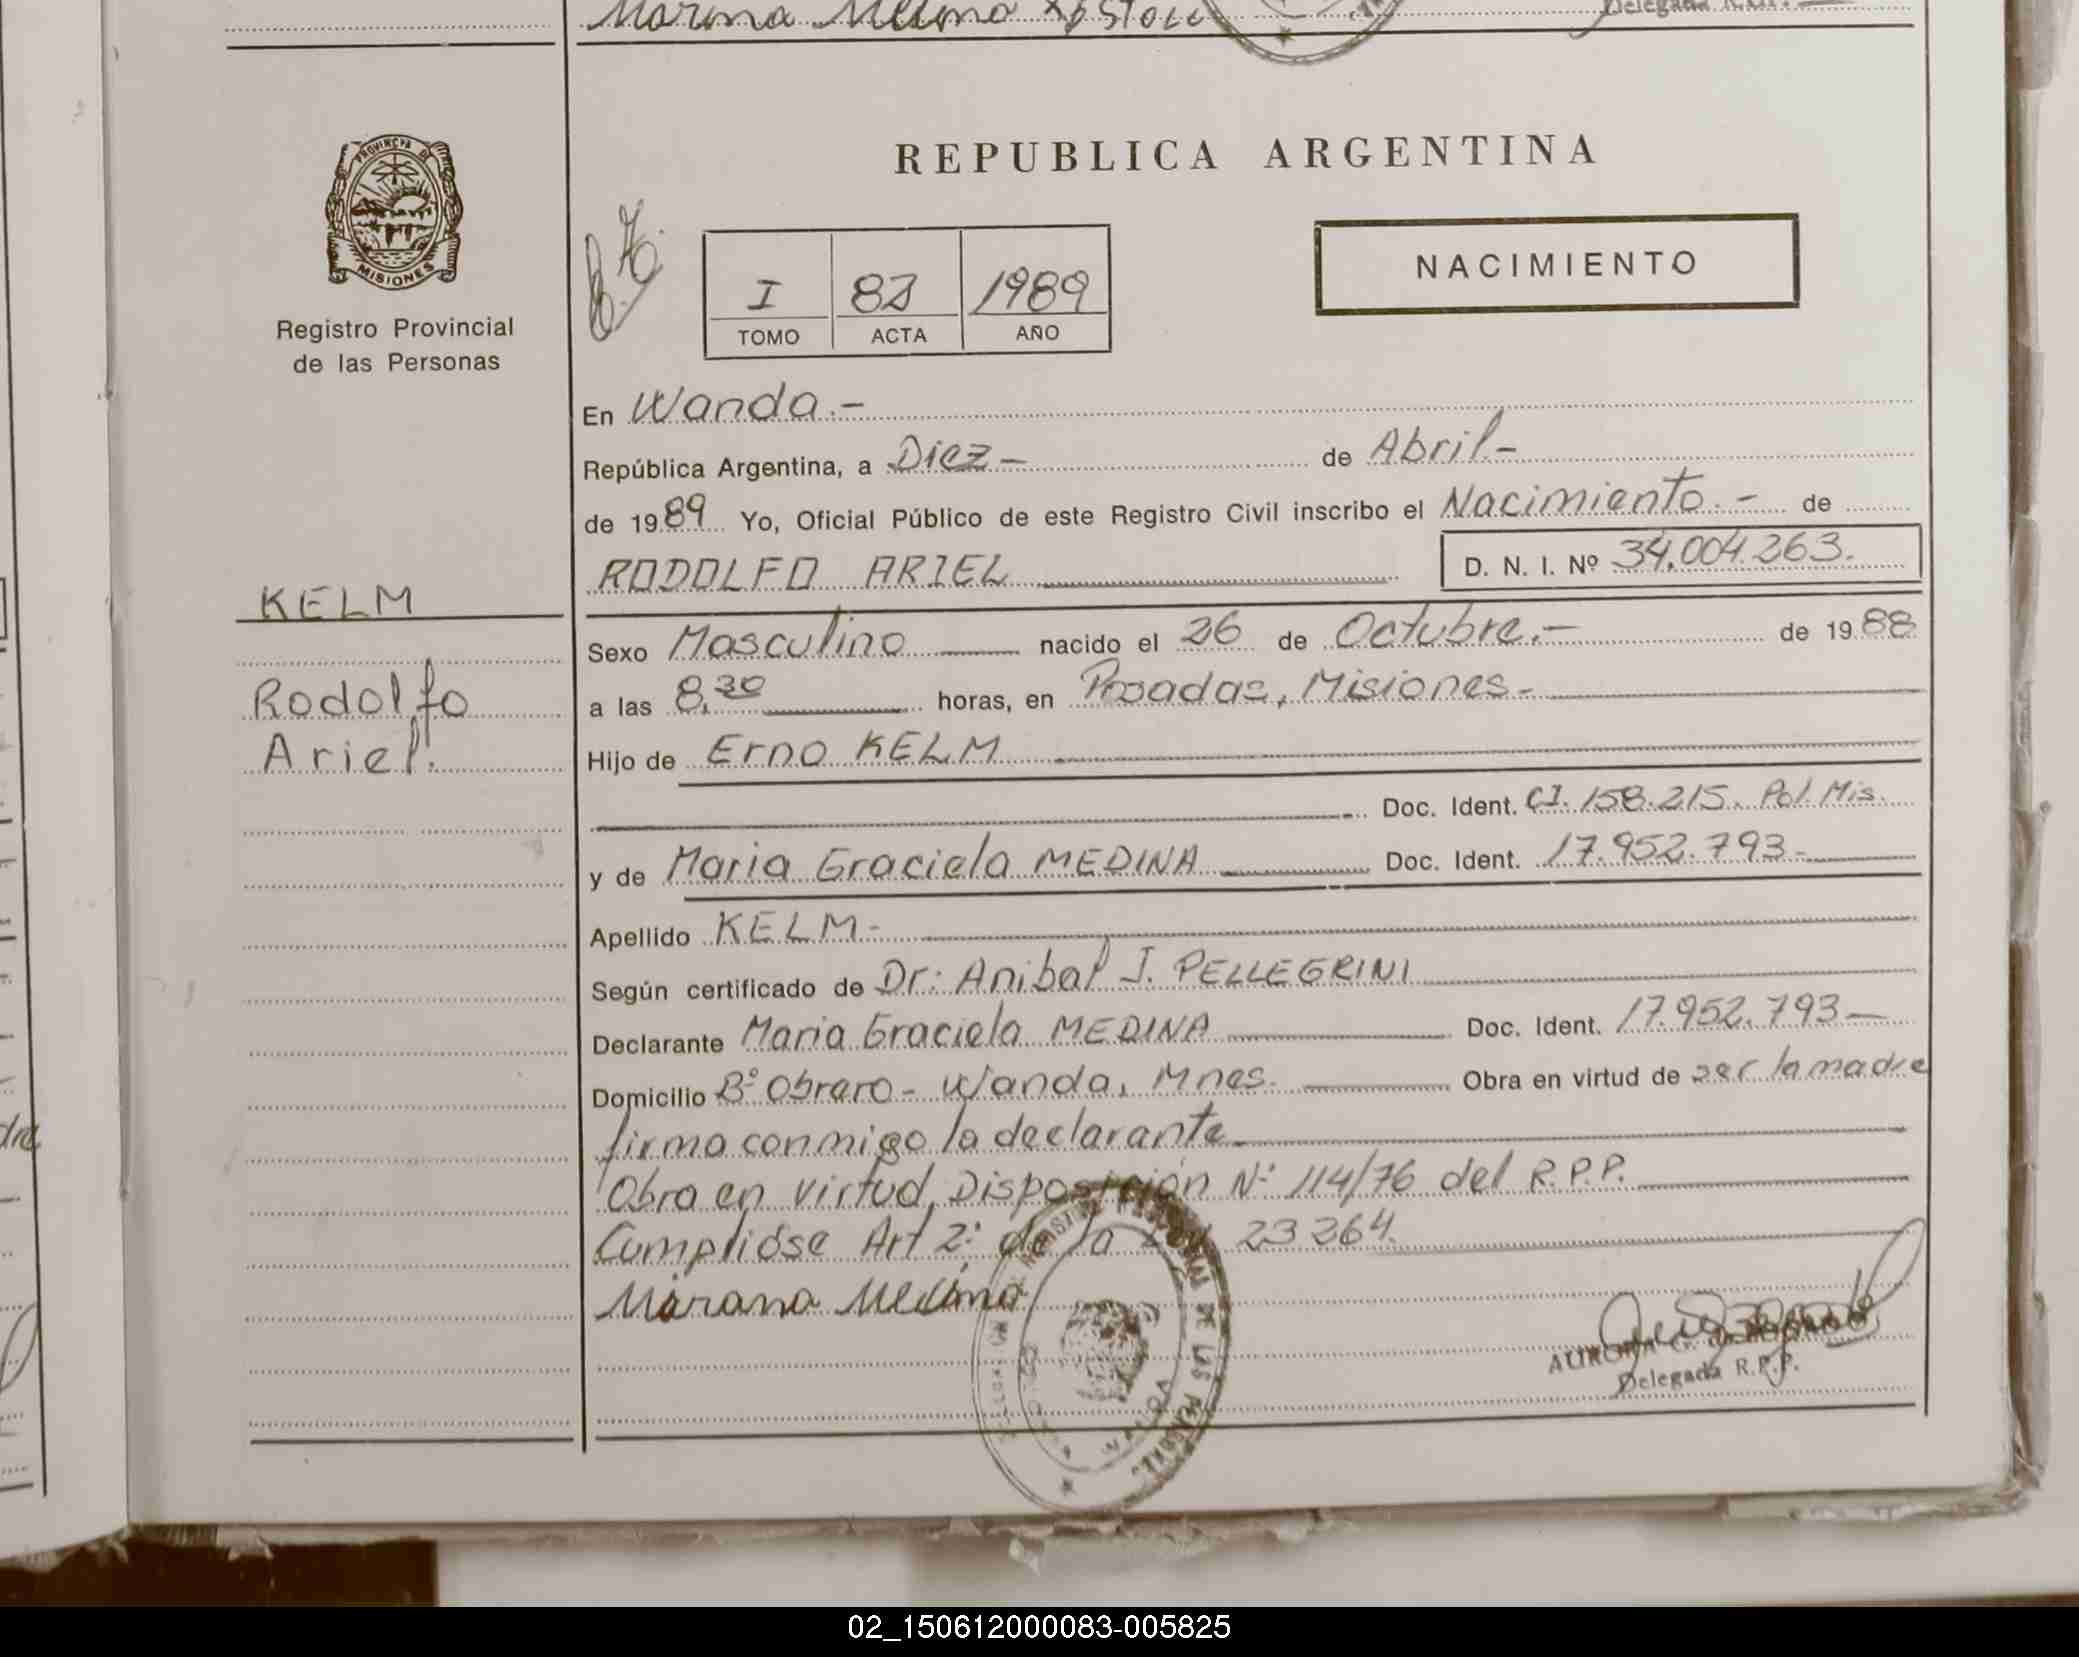 Delegada R.P.P.
PROVINCIA DE
MISIONES
Registro Provincial
de las Personas
REPUBLICA ARGENTINA
NACIMIENTO
I 82 1989
TOMO ACTA AÑO
En Wanda.-
República Argentina, a Diez - de Abril-
de 1989 Yo, Oficial Público de este Registro Civil inscribo el Nacimiento.- de
RODOLFO ARIEL D. N. I. Nº 34.004.263.
KELM
Rodolfo
Ariel.
Sexo Masculino nacido el 26 de Octubre.- de 1988
a las 8,30 horas, en Posadas, Misiones-
Hijo de Erno KELM
Doc. Ident. CI. 158.215. Pol. Mis.
y de Maria Graciela MEDINA Doc. Ident. 17.952.793-
Apellido KELM-
Según certificado de Dr: Anibal J. PELLEGRINI
Declarante Maria Graciela MEDINA Doc. Ident. 17.952.793-
Domicilio Bº Obrero - Wanda, Mnes. Obra en virtud de ser la madre
firma conmigo la declarante
Obra en virtud Disposición Nº 114/76 del R.P.P.
Cumplióse Art 2º de la Ley 23264.
AURORA G.
Delegada R.P.P.
WANDA
02_150612000083-005825